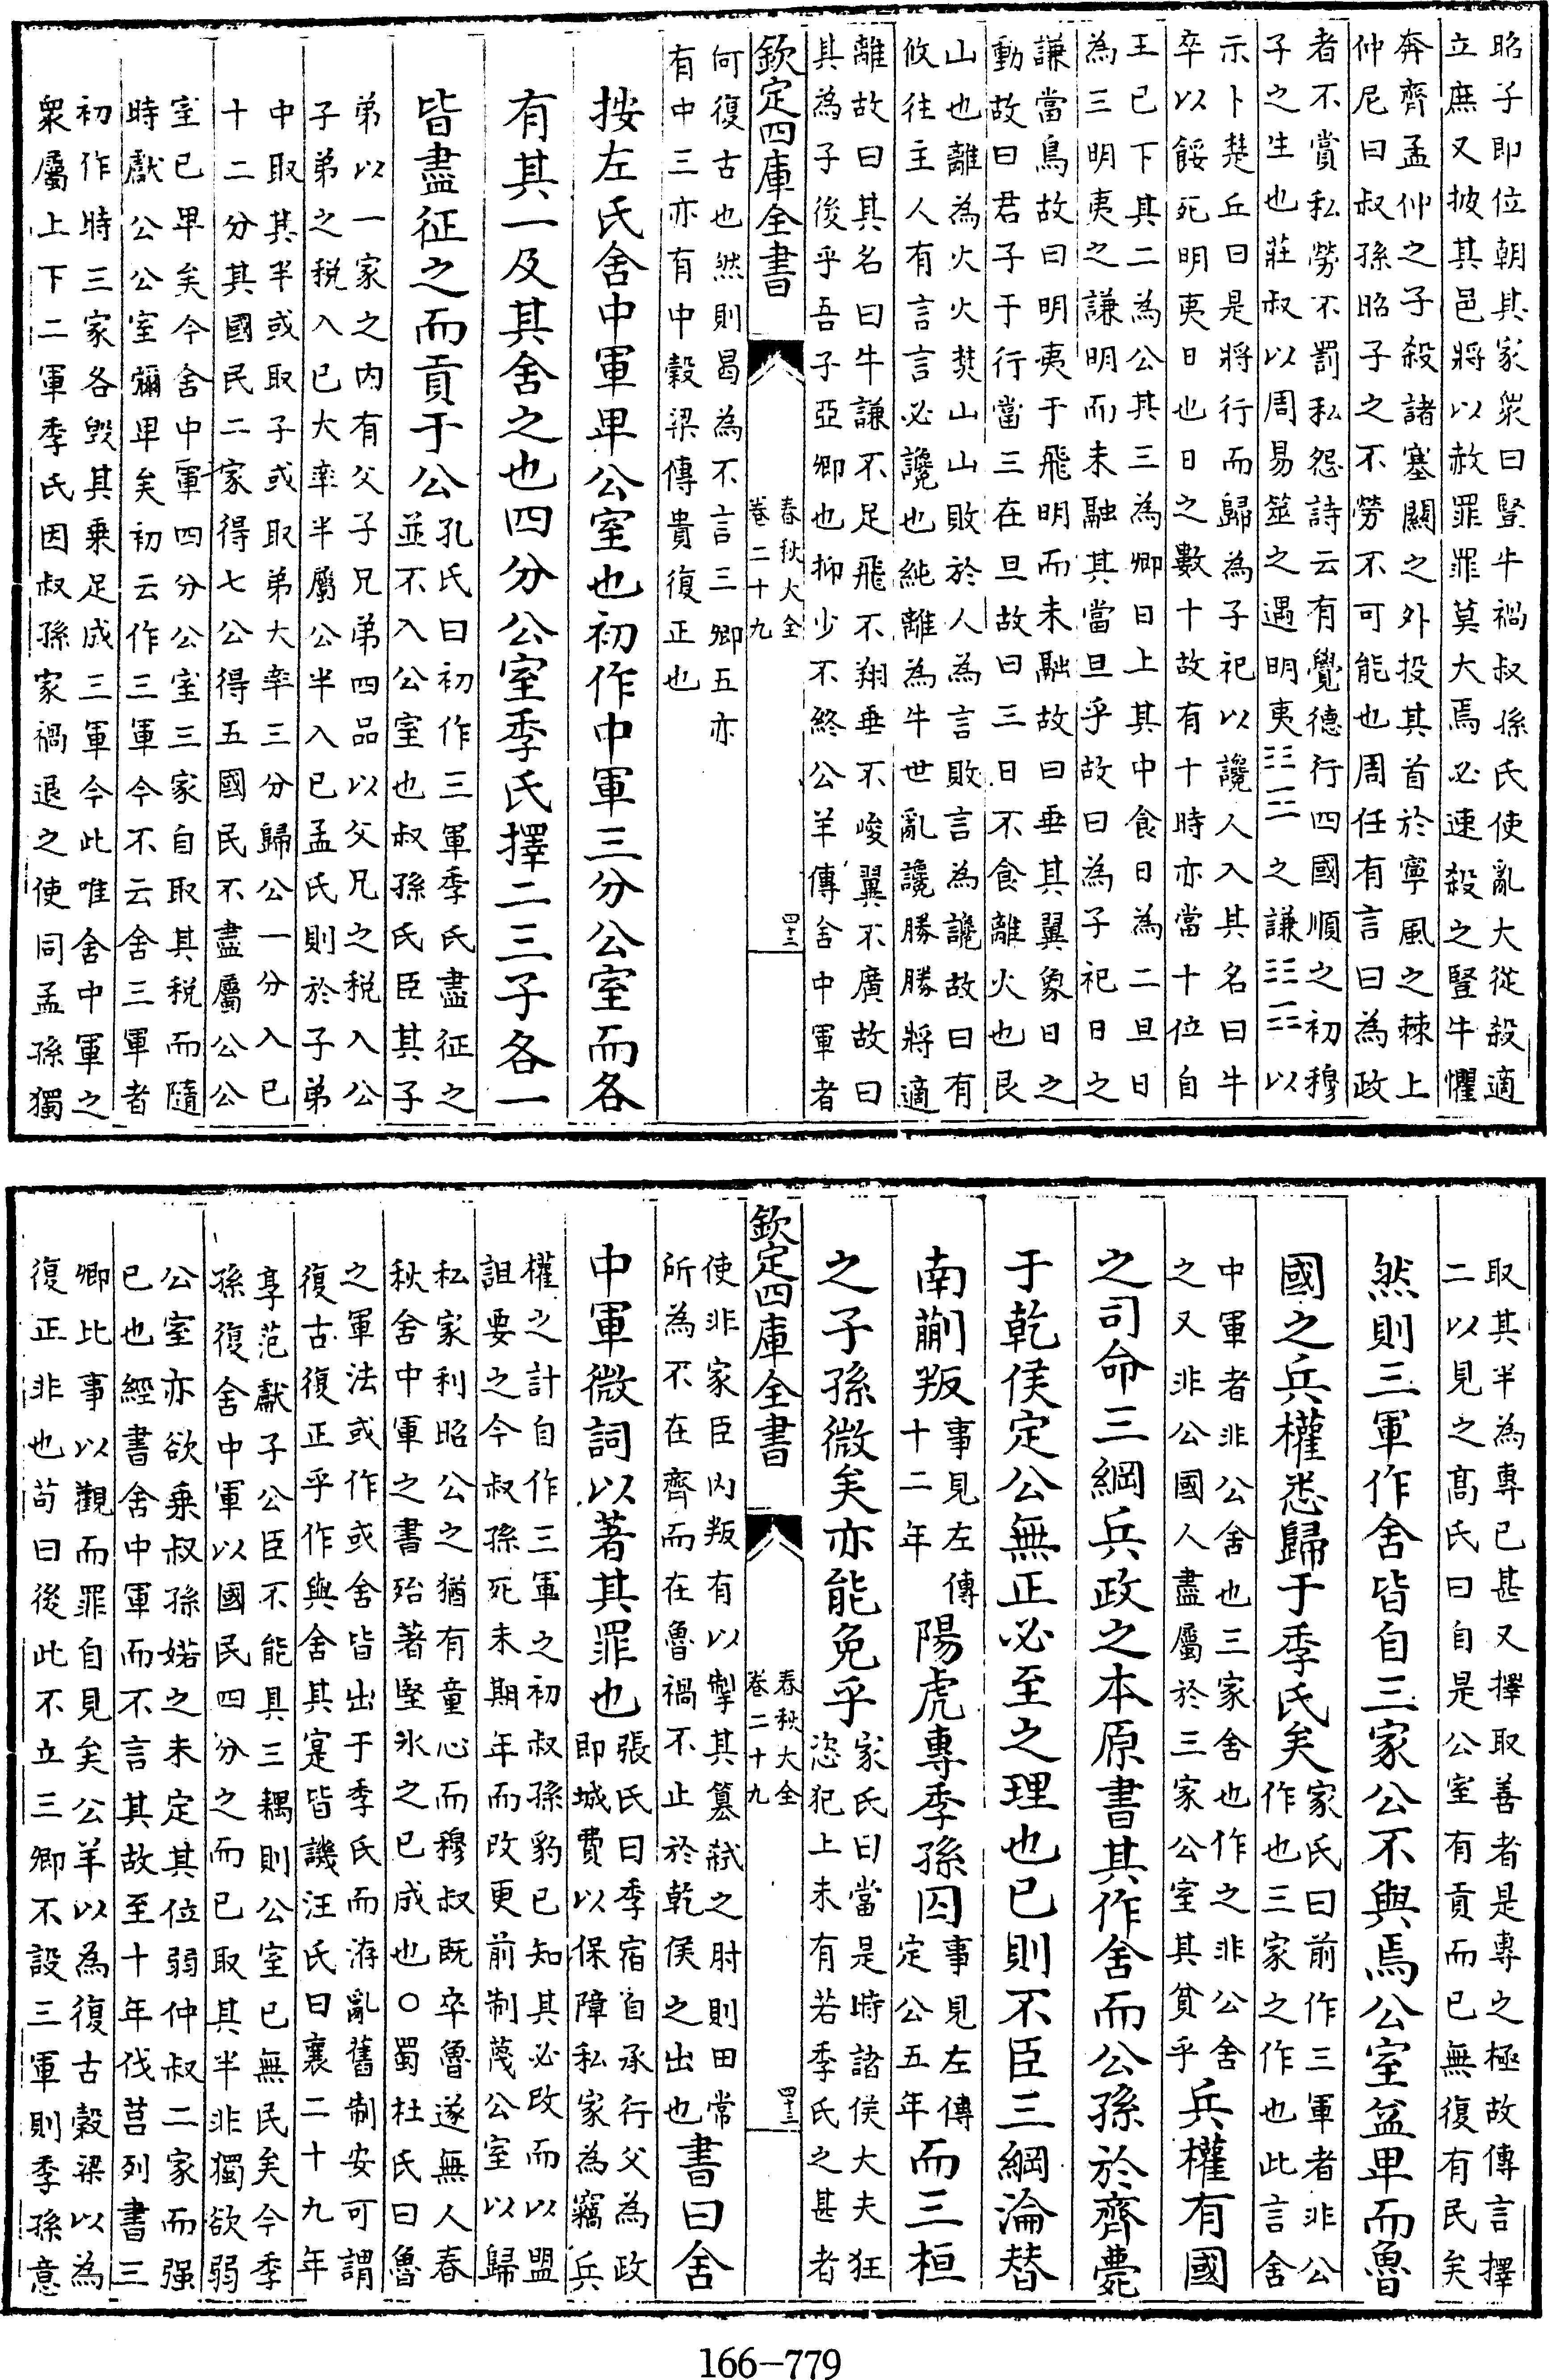 昭子即位朝其家衆曰豎牛禍叔孫氏使亂大從殺適
立庶又披其邑將以赦罪罪莫大焉必速殺之豎牛懼
奔齊孟仲之子殺諸塞關之外投其首於寧風之棘上
仲尼曰叔孫昭子之不勞不可能也周任有言曰為政
者不賞私勞不罰私怨詩云有覺德行四國順之初穆
子之生也莊叔以周易筮之遇明夷䷣之謙䷎以
示卜楚丘曰是將行而歸為子祀以讒人入其名曰牛
卒以餒死明夷日也日之數十故有十時亦當十位自
王已下其二為公其三為卿日上其中食日為二旦日
為三明夷之謙明而未融其當旦乎故曰為子祀日之
謙當鳥故曰明夷于飛明而未融故曰垂其翼象日之
動故曰君子于行當三在旦故曰三日不食離火也艮
山也離為火火焚山山敗於人為言敗言為讒故曰有
攸往主人有言言必讒也純離為牛世亂讒勝勝將適
離故曰其名曰牛謙不足飛不翔垂不峻翼不廣故曰
其為子後乎吾子亞卿也抑少不終公羊傳舍中軍者
欽定四庫全書
春秋大全
卷二十九
四十三
何復古也然則曷為不言三卿五亦
有中三亦有中穀梁傳貴復正也
按左氏舍中軍卑公室也初作中軍三分公室而各
有其一及其舍之也四分公室季氏擇二三子各一
皆盡征之而貢于公
孔氏曰初作三軍季氏盡征之
並不入公室也叔孫氏臣其子
弟以一家之內有父子兄弟四品以父兄之稅入公
子弟之稅入已大率半屬公半入已孟氏則於子弟
中取其半或取子或取弟大率三分歸公一分入已
十二分其國民二家得七公得五國民不盡屬公公
室已卑矣今舍中軍四分公室三家自取其稅而隨
時獻公公室彌卑矣初云作三軍今不云舍三軍者
初作時三家各毀其乗足成三軍今此唯舍中軍之
衆屬上下二軍季氏因叔孫家禍退之使同孟孫獨
取其半為專已甚又擇取善者是專之極故傳言擇
二以見之高氏曰自是公室有貢而已無復有民矣
然則三軍作舍皆自三家公不與焉公室益卑而魯
國之兵權悉歸于季氏矣
家氏曰前作三軍者非公
作也三家之作也此言舍
中軍者非公舍也三家舍也作之非公舍
之又非公國人盡屬於三家公室其貧乎
兵權有國
之司命三綱兵政之本原書其作舍而公孫於齊薨
于乾侯定公無正必至之理也已則不臣三綱淪替
南蒯叛
事見左傳
十二年
陽虎專季孫囚
事見左傳
定公五年
而三桓
之子孫微矣亦能免乎
家氏曰當是時諸侯大夫狂
恣犯上未有若季氏之甚者
欽定四庫全書
春秋大全
卷二十九
四十三
使非家臣內叛有以掣其簒弒之肘則田常
所為不在齊而在魯禍不止於乾侯之出也
書曰舍
中軍微詞以著其罪也
張氏曰季宿自承行父為政
即城費以保障私家為竊兵
權之計自作三軍之初叔孫豹已知其必改而以盟
詛要之今叔孫死未期年而改更前制蔑公室以歸
私家利昭公之猶有童心而穆叔既卒魯遂無人春
秋舍中軍之書殆著堅氷之已成也○蜀杜氏曰魯
之軍法或作或舍皆出于季氏而洊亂舊制安可謂
復古復正乎作與舍其寔皆譏汪氏曰襄二十九年
享范獻子公臣不能具三耦則公室已無民矣今季
孫復舍中軍以國民四分之而已取其半非獨欲弱
公室亦欲乗叔孫婼之未定其位弱仲叔二家而强
已也經書舍中軍而不言其故至十年伐莒列書三
卿比事以觀而罪自見矣公羊以為復古穀梁以為
復正非也苟曰後此不立三卿不設三軍則季孫意
166-779